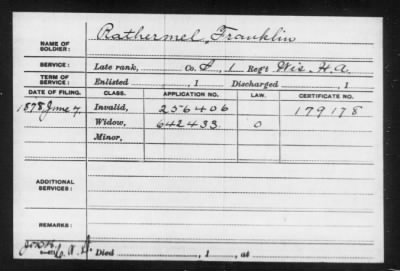 NAME OF SOLDIER: Rathermel, Franklin
SERVICE: Late rank, Co. L, 1 Reg't Wis. H.A.
TERM OF SERVICE: Enlisted , 1 Discharged , 1
DATE OF FILING. CLASS. APPLICATION NO. LAW. CERTIFICATE NO.
1878 June 7. Invalid, 256406 179178
Widow, 642433 0
Minor,
ADDITIONAL SERVICES:
REMARKS:
Died , 1 , at